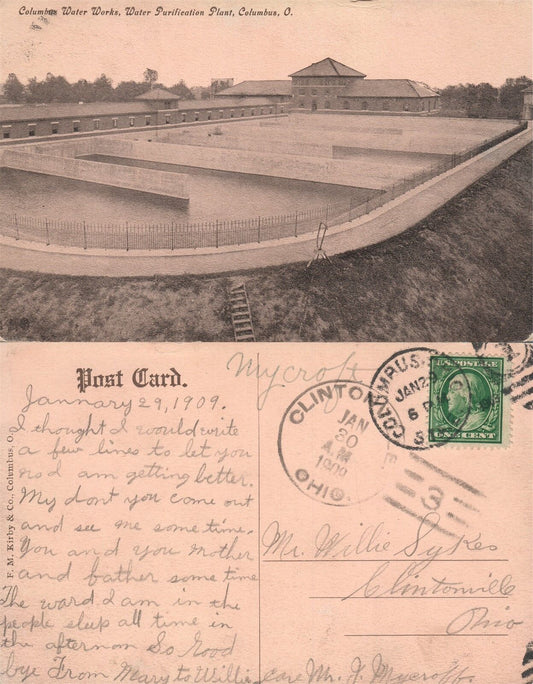 Columbus Water Works, Water Purification Plant, Columbus, O.
Post Card.
Mycroft
COLUMBUS
JAN 2
6 P
U.S. POSTAGE
ONE CENT
CLINTON
JAN
30
A.M
1909
OHIO.
3
January 29, 1909.
I thought I would write
a few lines to let you
no I am getting better.
My dont you come out
and see me some time.
You and you Mother
and bather some time
The ward I am in the
people sleep all time in
the afternoon So Good
bye From Mary to Willie
Mr. Willie Sykes
Clintonville
Ohio
care Mr. J. Mycroft
F. M. Kirby & Co., Columbus, O.